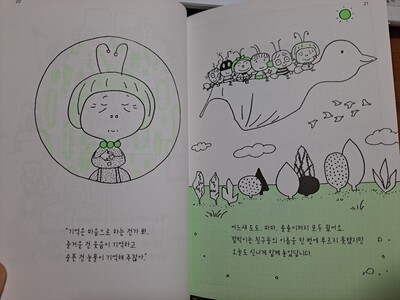 20
"기억은 마음으로 하는 건가 봐.
즐거운 건 웃음이 기억하고
슬픈 건 눈물이 기억해 주잖아."
21
어느새 도도, 따따, 송송이까지 모두 왔어요.
친구들의 이름을 한 번에 부르지 못했지만
오늘도 신나게 함께 놀았답니다.